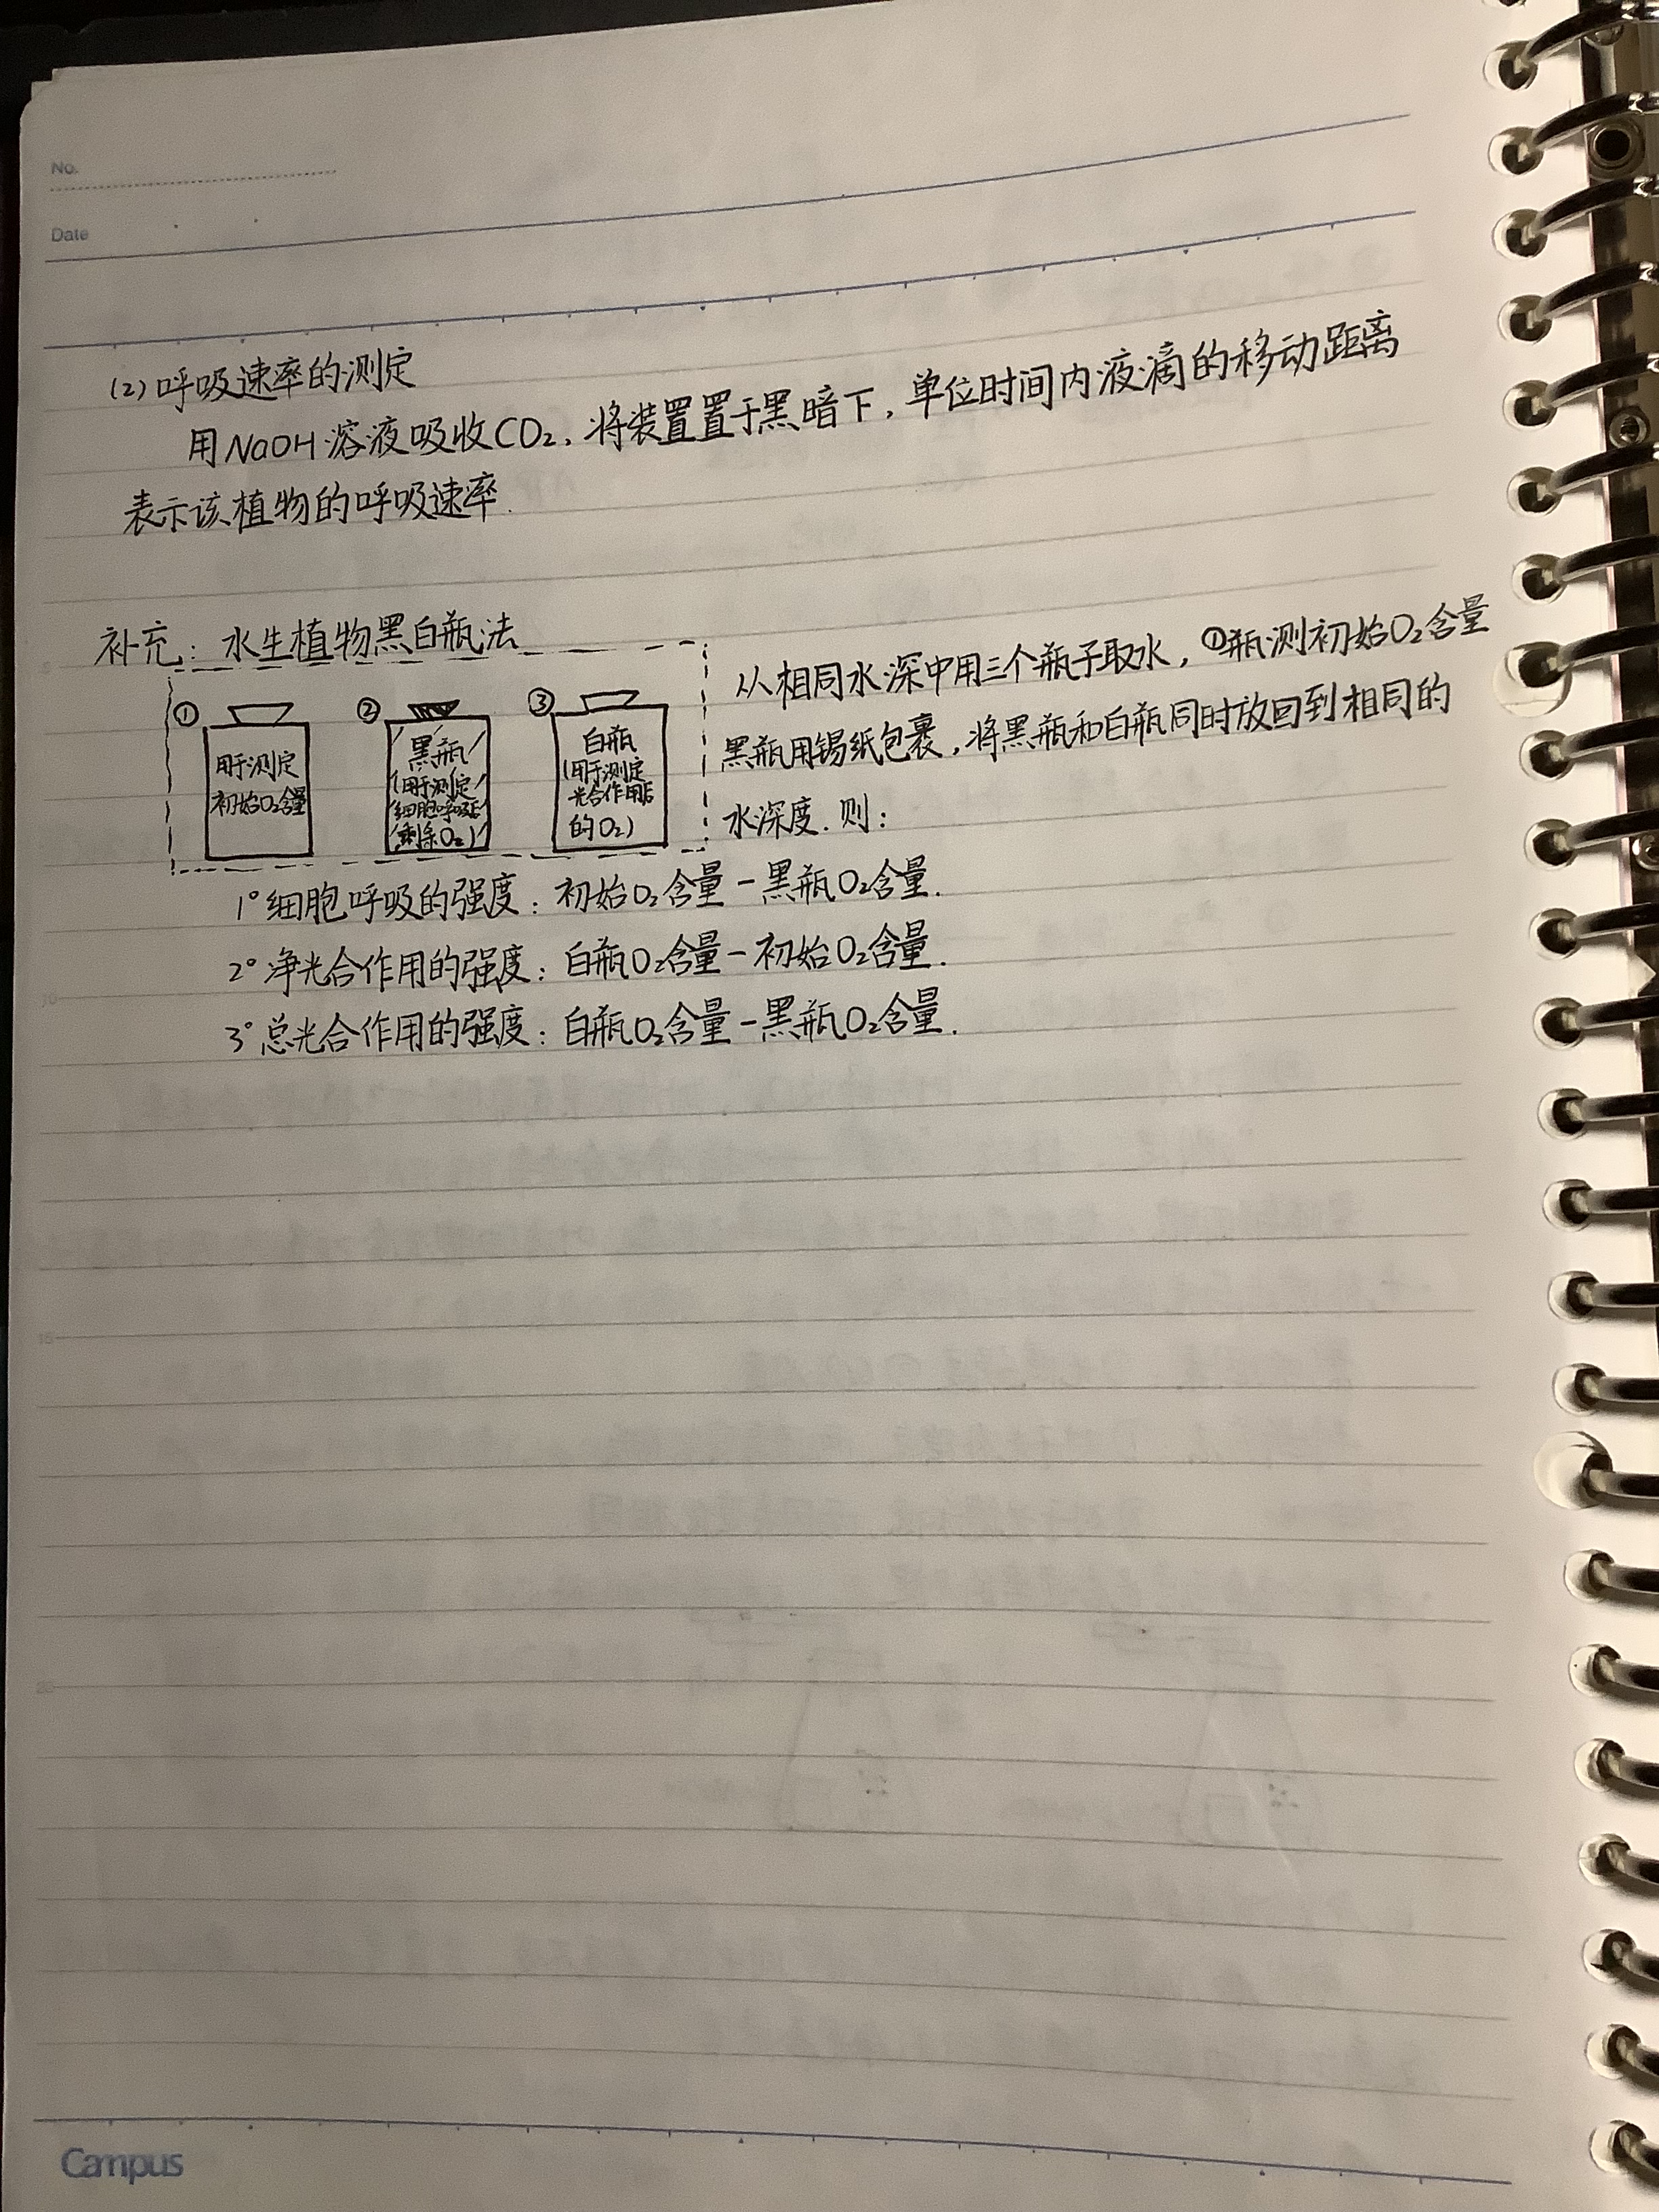 No.
Date
(2)呼吸速率的测定
用NaOH溶液吸收CO₂,将装置置于黑暗下,单位时间内液滴的移动距离
表示该植物的呼吸速率.
补充:水生植物黑白瓶法
①
用于测定
初始O₂含量
②
黑瓶
(用于测定
细胞呼吸后
剩余O₂)
③
白瓶
(用于测定
光合作用后
的O₂)
从相同水深中用三个瓶子取水,①瓶测初始O₂含量
黑瓶用锡纸包裹,将黑瓶和白瓶同时放回到相同的
水深度.则:
1°细胞呼吸的强度:初始O₂含量-黑瓶O₂含量.
2°净光合作用的强度:白瓶O₂含量-初始O₂含量.
3°总光合作用的强度:白瓶O₂含量-黑瓶O₂含量.
5
10
15
20
Campus